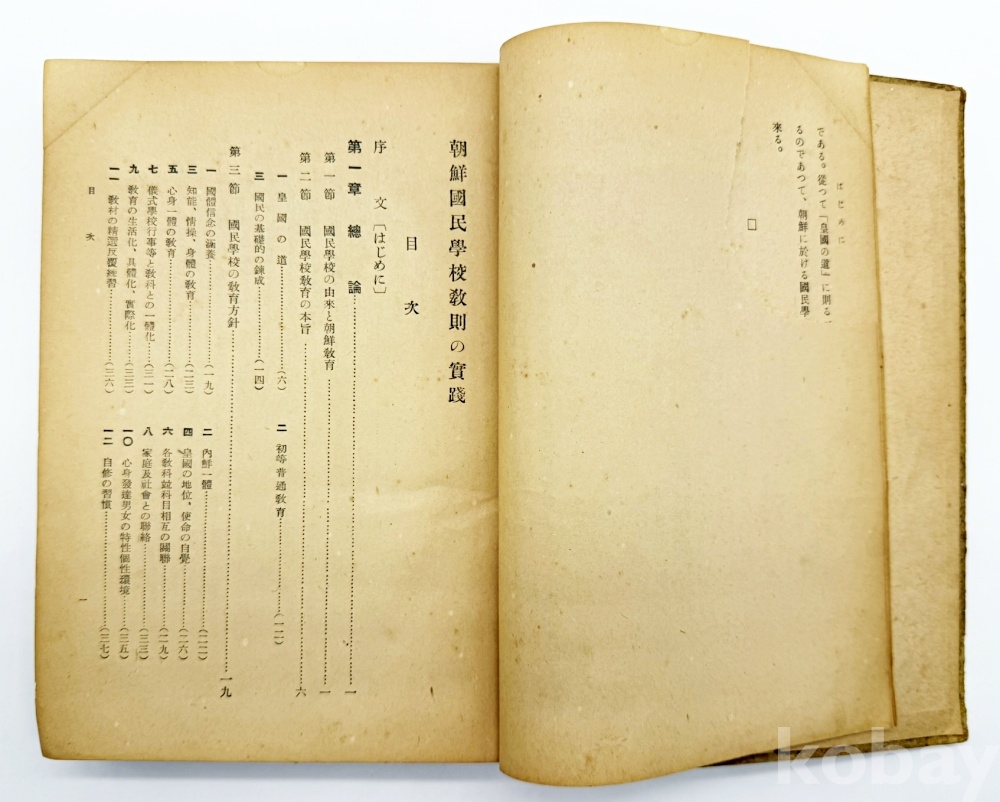 はじめに
である。從つて「皇國の道」に則る
るのであつて、朝鮮に於ける國民學
來る。
朝鮮國民學校敎則の實踐
目次
序文〔はじめに〕
第一章 總論……一
第一節 國民學校の由來と朝鮮敎育……一
第二節 國民學校敎育の本旨……六
一 皇國の道……(六)
二 初等普通敎育……(一一)
三 國民の基礎的の鍊成……(一四)
第三節 國民學校の敎育方針……一九
一 國體信念の涵養……(一九)
二 內鮮一體……(二二)
三 知能、情操、身體の敎育……(二三)
四 皇國の地位、使命の自覺……(二六)
五 心身一體の敎育……(二八)
六 各敎科竝科目相互の關聯……(二九)
七 儀式學校行事等と敎科との一體化……(三一)
八 家庭及社會との聯絡……(三三)
九 敎育の生活化、具體化、實際化……(三三)
一〇 心身發達男女の特性個性環境……(三五)
一一 敎材の精選反覆練習……(三六)
一二 自修の習慣……(三七)
目次
一
kobay